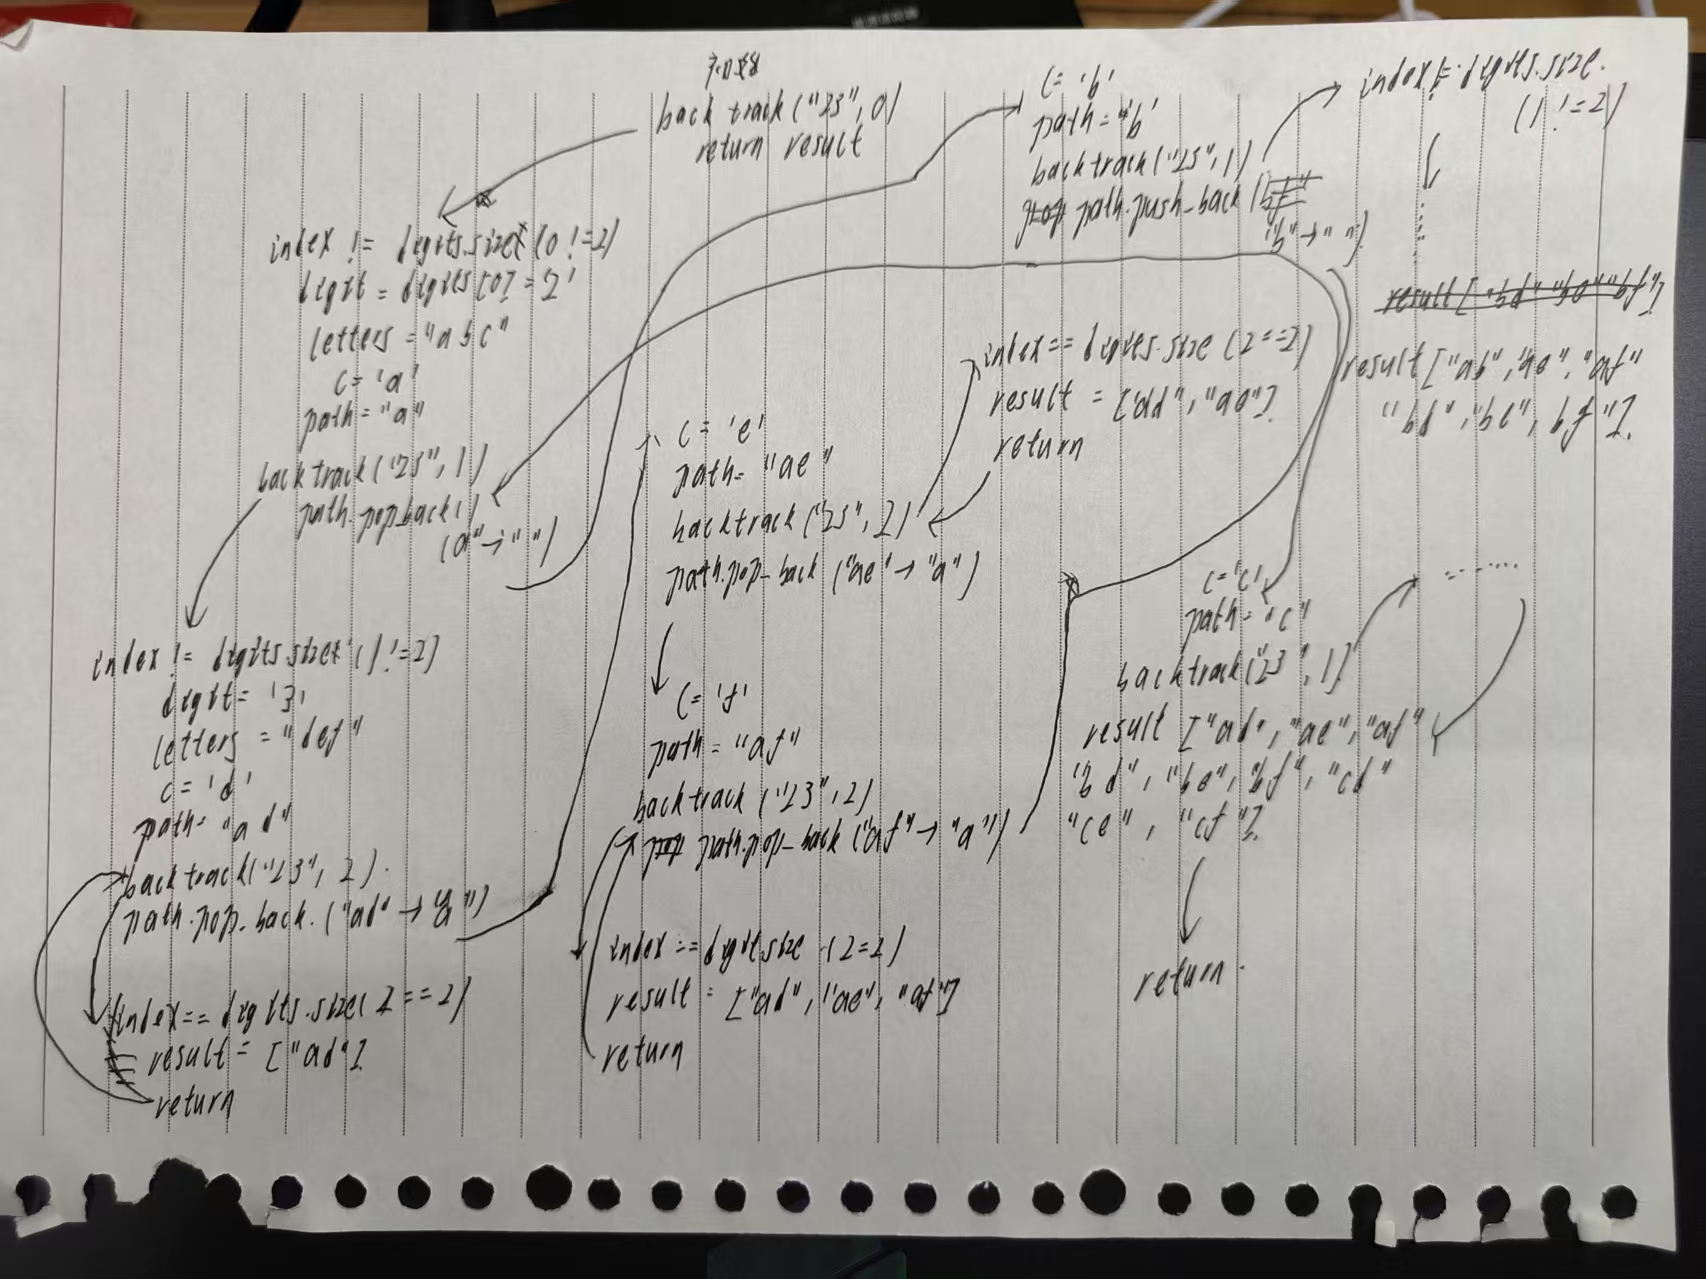 初始
backtrack("23", 0)
return result
index != digits.size (0 != 2)
digit = digits[0] = '2'
letters = "abc"
c = 'a'
path = "a"
backtrack("23", 1)
path.pop_back()
("a" → " ")
index != digits.size (1 != 2)
digit = '3'
letters = "def"
c = 'd'
path = "ad"
backtrack("23", 2)
path.pop_back. ("ad" → "a")
index == digits.size (2 == 2)
result = ["ad"]
return
c = 'e'
path = "ae"
backtrack("23", 2)
path.pop_back ("ae" → "a")
index == digits.size (2 == 2)
result = ["ad", "ae"]
return
c = 'f'
path = "af"
backtrack("23", 2)
path.pop_back ("af" → "a")
index == digit.size (2=2)
result = ["ad", "ae", "af"]
return
c = 'b'
path = "b"
backtrack("23", 1)
path.push_back
("b" → " ")
index != digits.size.
(1 != 2)
result ["bd" "be" "bf"]
result ["ad", "ae", "af"
"bd", "be", bf"]
c = 'c'
path = "c"
backtrack("23", 1)
result ["ad", "ae", "af"
"bd", "be", "bf", "cd"
"ce", "cf"]
return.